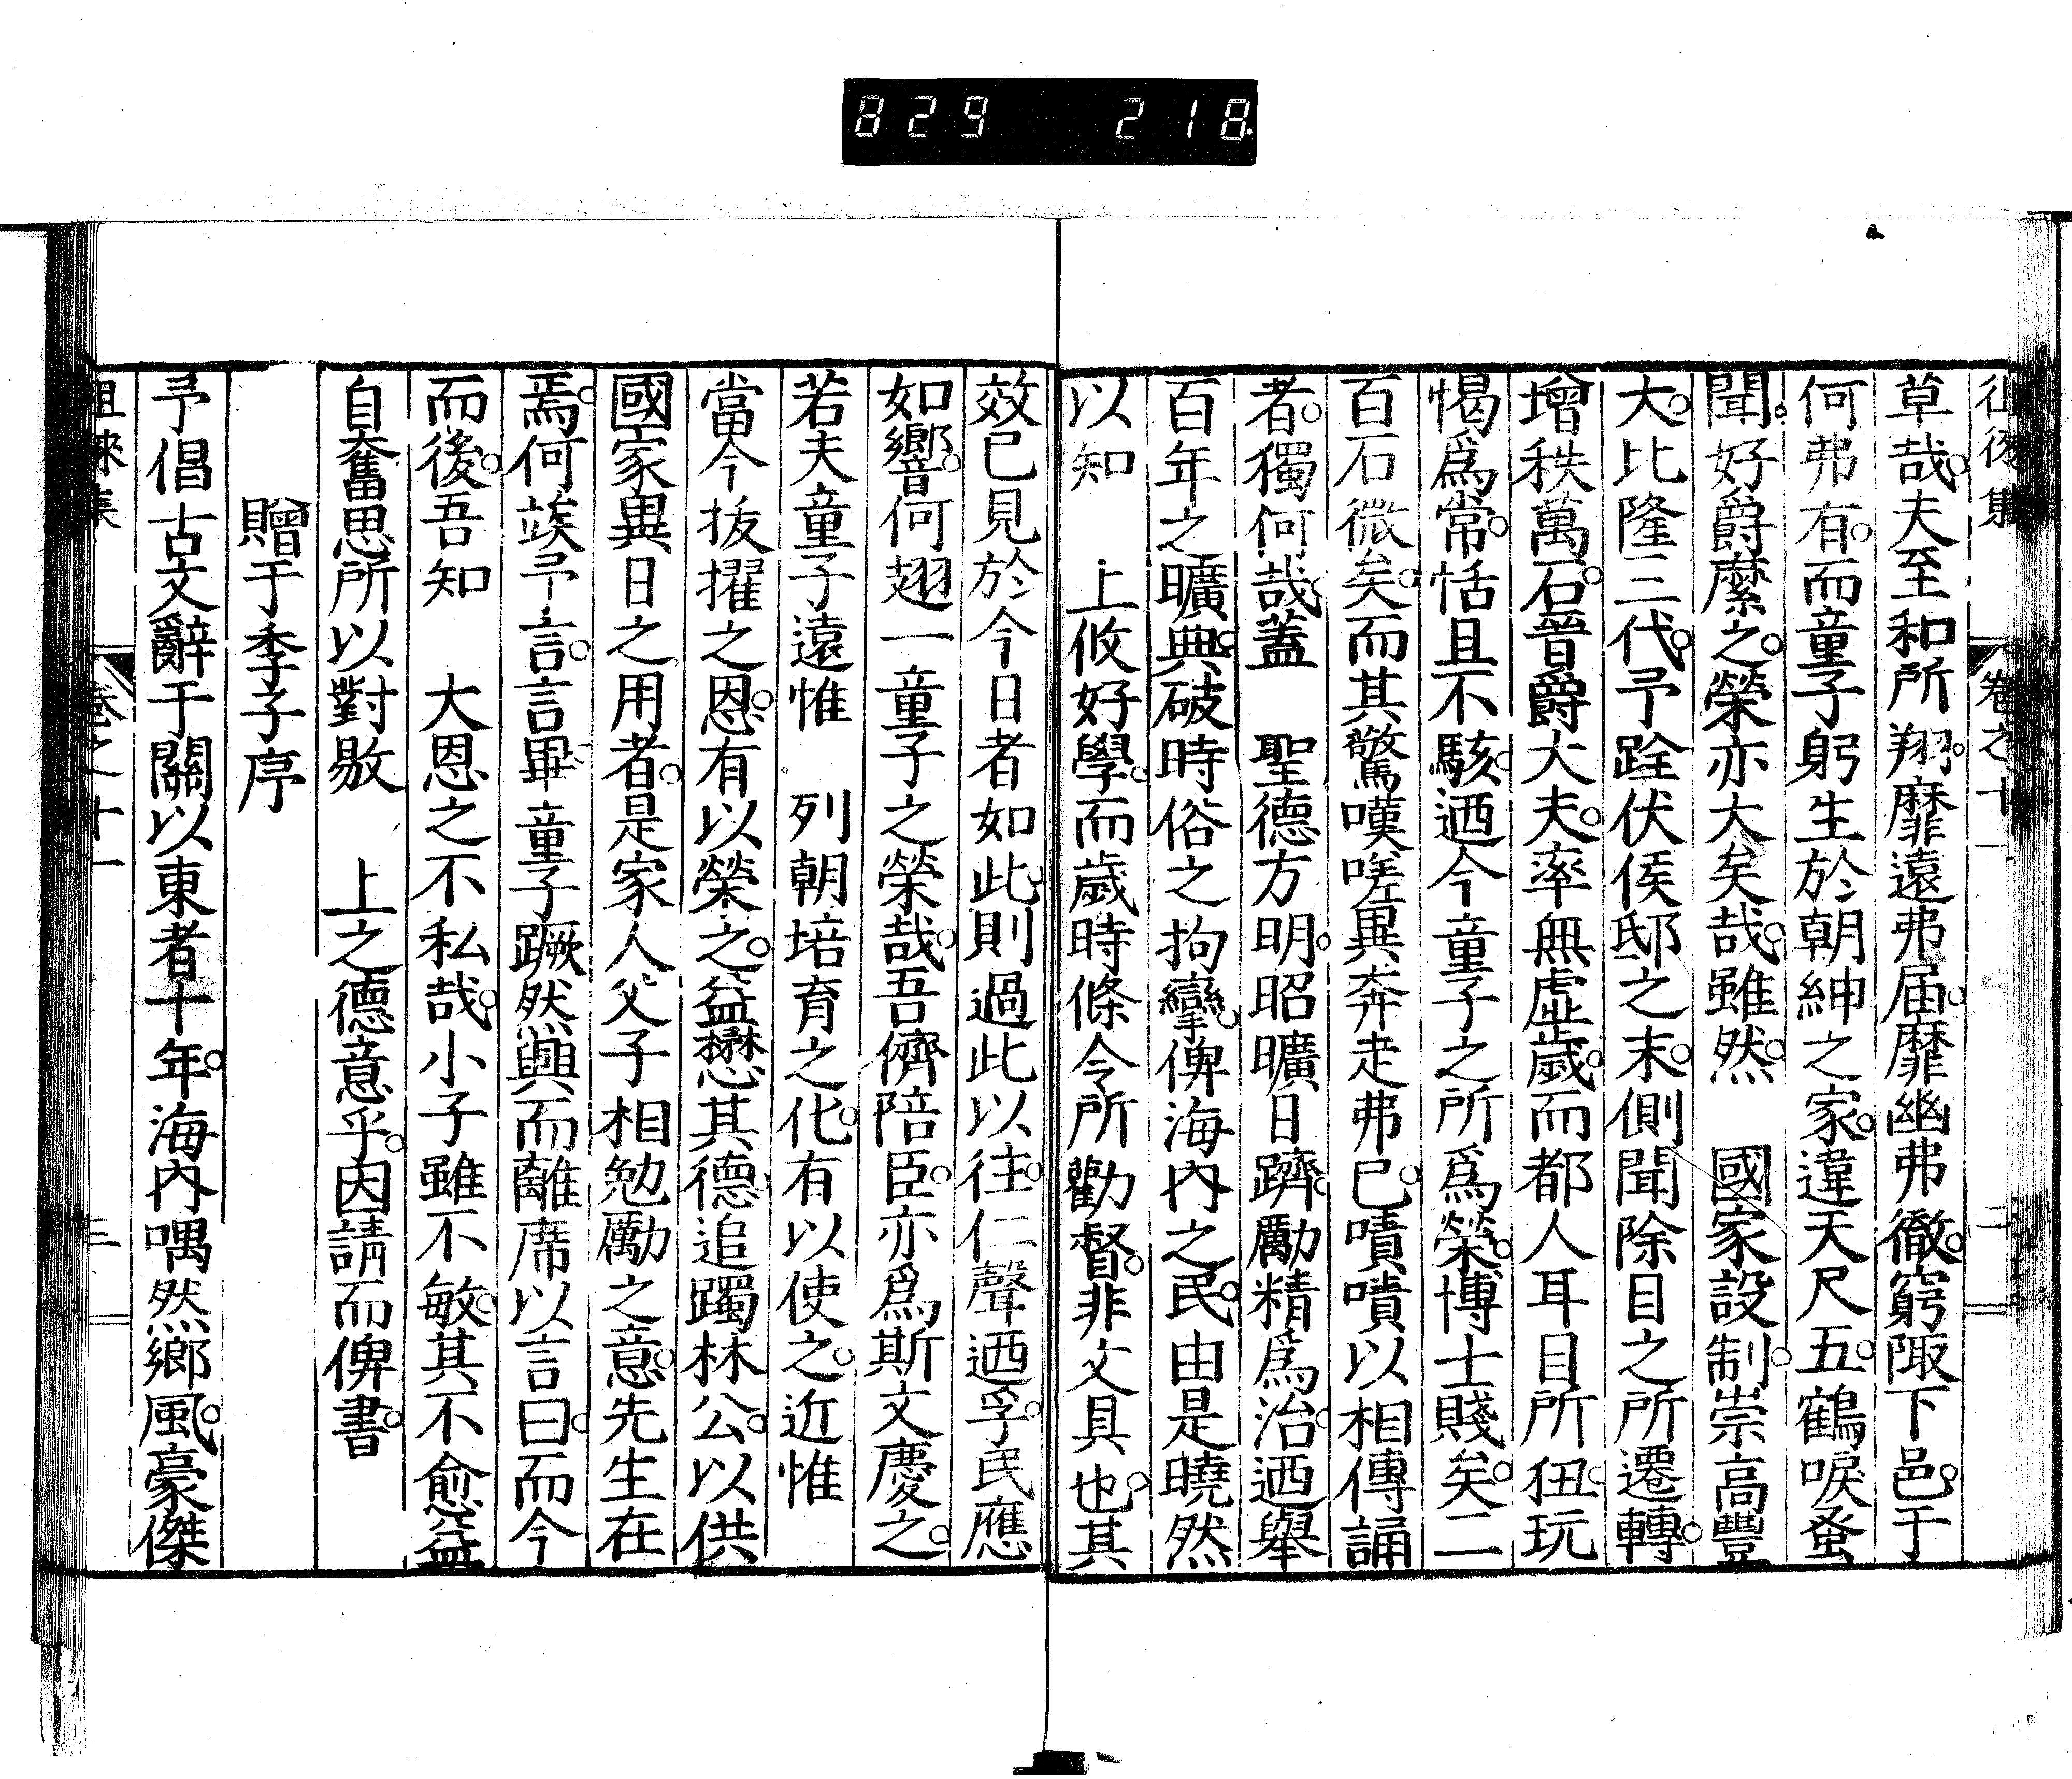 829 218
徂徠集 卷之十一 二
草哉夫至和所翔靡遠弗届靡幽弗徹窮陬下邑于
何弗有而童子躬生於朝紳之家違天尺五鶴唳蚤
聞好爵縻之榮亦大矣哉雖然 國家設制崇高豐
大比隆三代予跧伏侯邸之末側聞除目之所遷轉
增秩萬石晉爵大夫率無虛歲而都人耳目所狃玩
愒爲常恬且不駭迺今童子之所爲榮博士賤矣二
百石微矣而其驚嘆嗟異奔走弗已嘖嘖以相傳誦
者獨何哉蓋 聖德方明昭曠日躋勵精爲治迺舉
百年之曠典破時俗之拘攣俾海內之民由是曉然
以知 上攸好學而歲時條令所勸督非文具也其
效已見於今日者如此則過此以往仁聲迺孚民應
如響何翅一童子之榮哉吾儕陪臣亦爲斯文慶之
若夫童子遠惟 列朝培育之化有以使之近惟
當今拔擢之恩有以榮之益懋其德追躅林公以供
國家異日之用者是家人父子相勉勵之意先生在
焉何竢予言言畢童子蹶然興而離席以言曰而今
而後吾知 大恩之不私哉小子雖不敏其不愈益
自奮思所以對敭 上之德意乎因請而俾書
贈于季子序
予倡古文辭于關以東者十年海內喁然鄉風豪傑
徂徠集 卷之十一 三